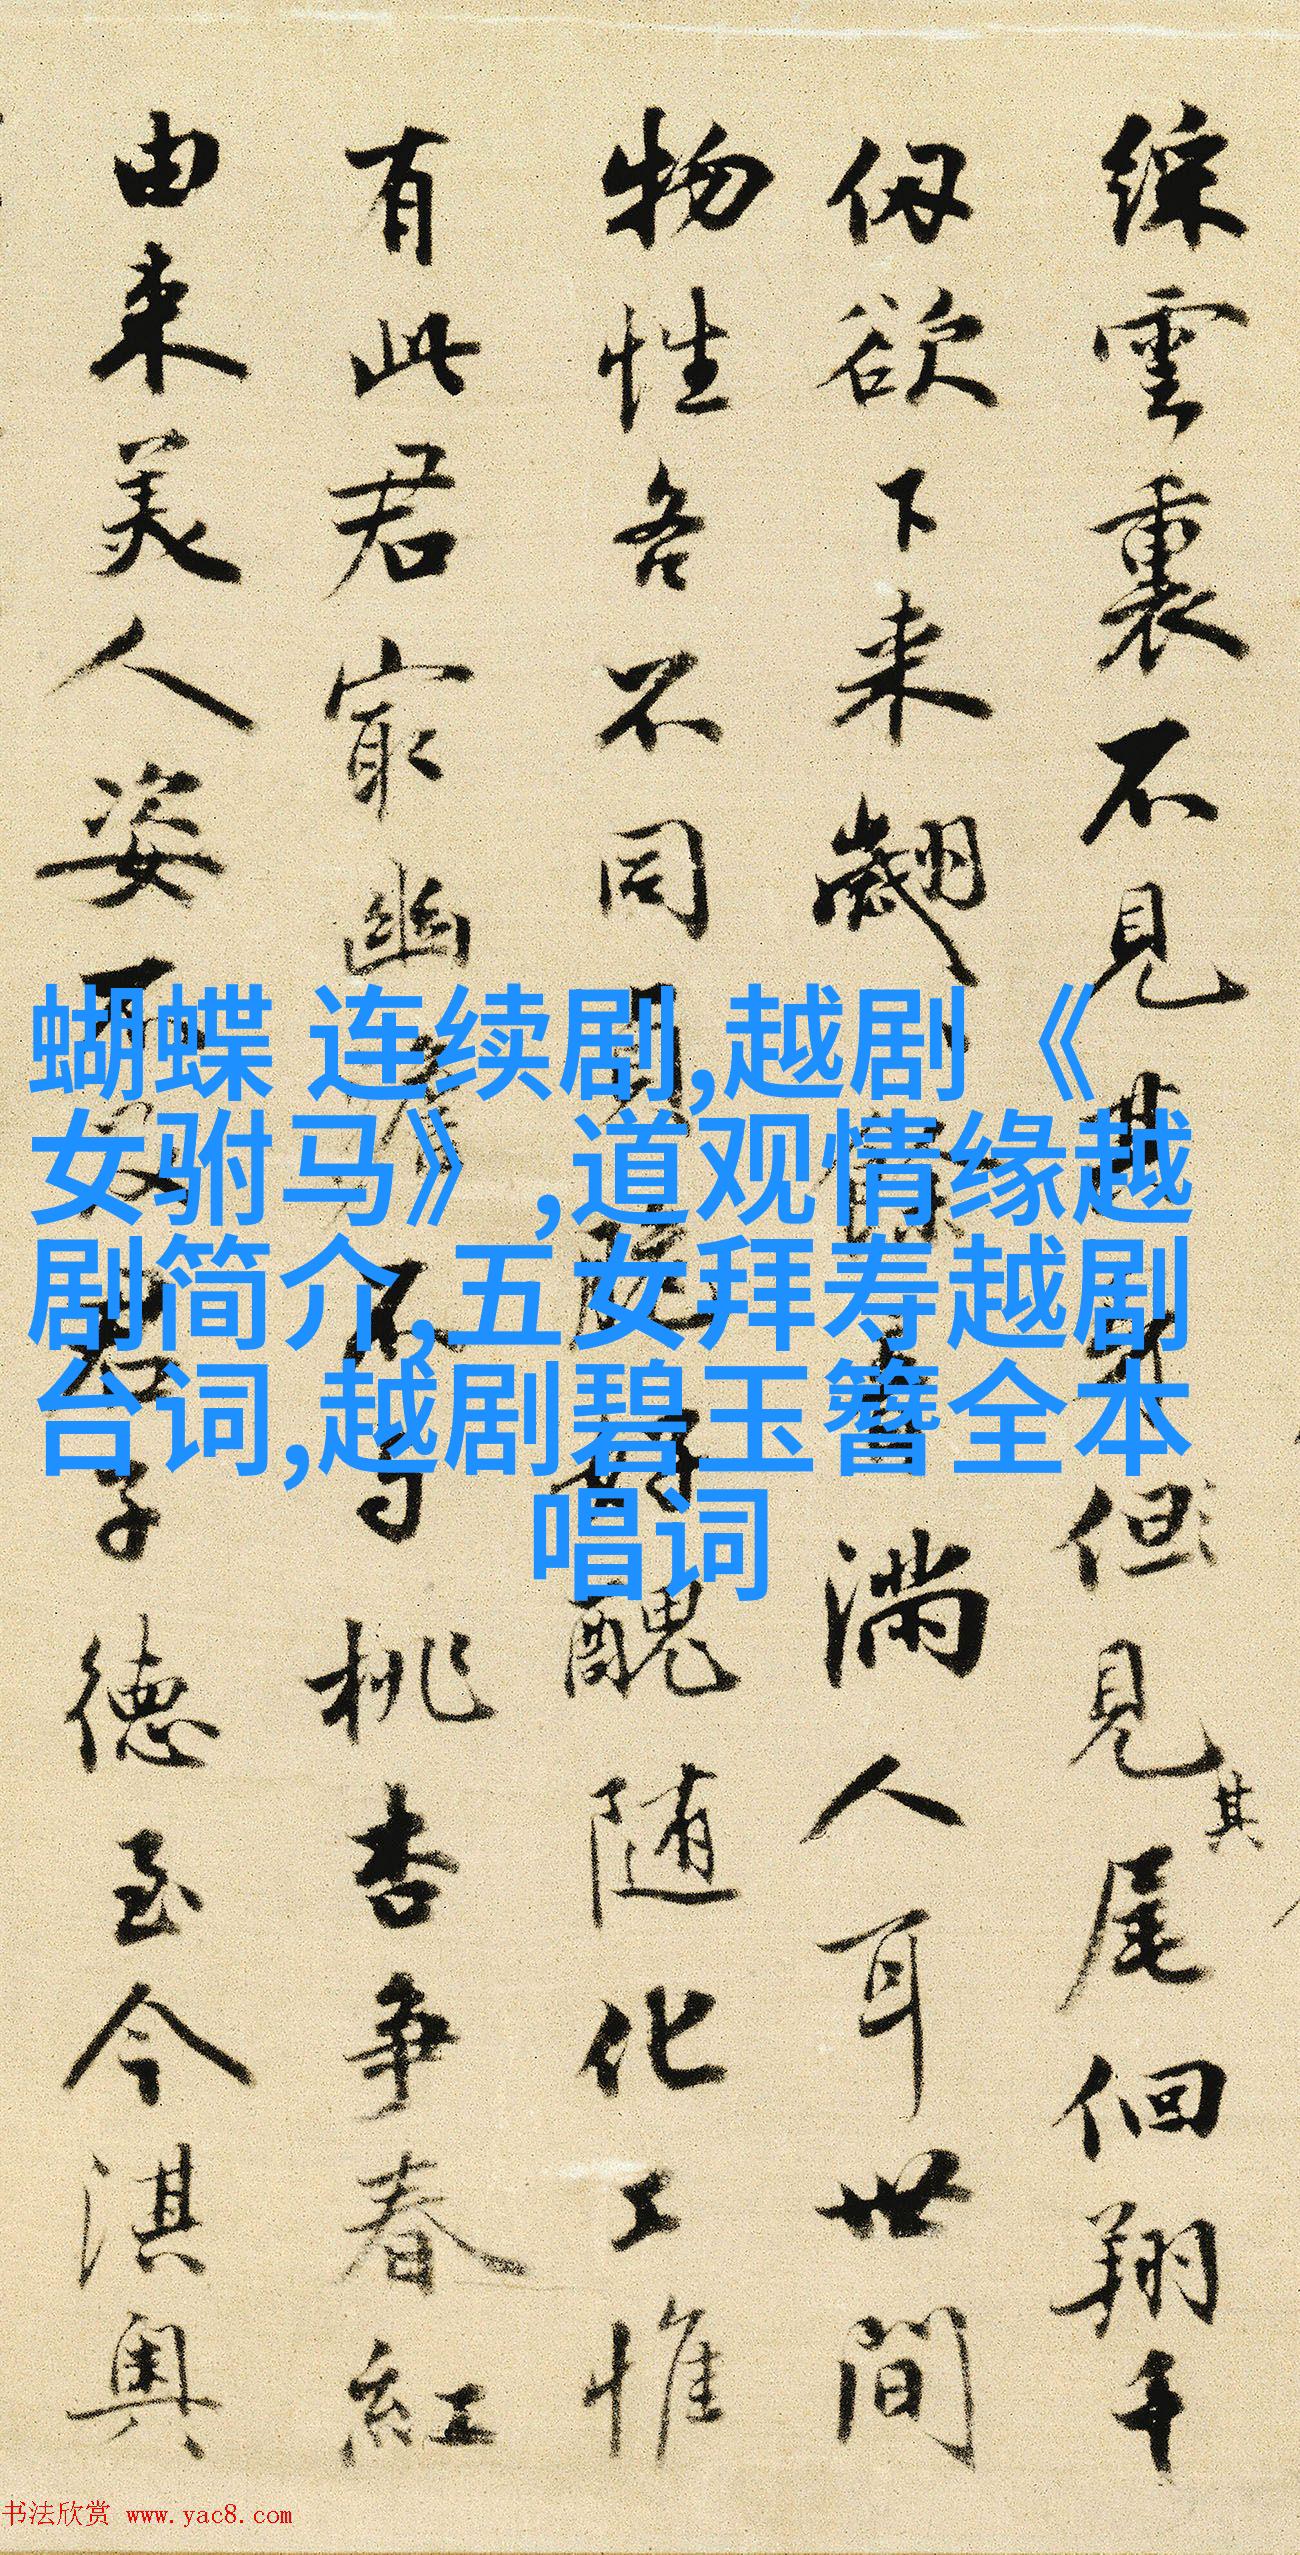 綵雲裏不見其身但見其尾佪翔千
仭欲下来翽餘音滿人耳世間
物性各不同醜随化工惟
有此君㝡幽不与桃杏争春紅
由来美人姿君子德至今淇奥
蝴蝶 连续剧,越剧《
女驸马》,道观情缘越
剧简介,五女拜寿越剧
台词,越剧碧玉簪全本
唱词
书法欣赏 www.yac8.com